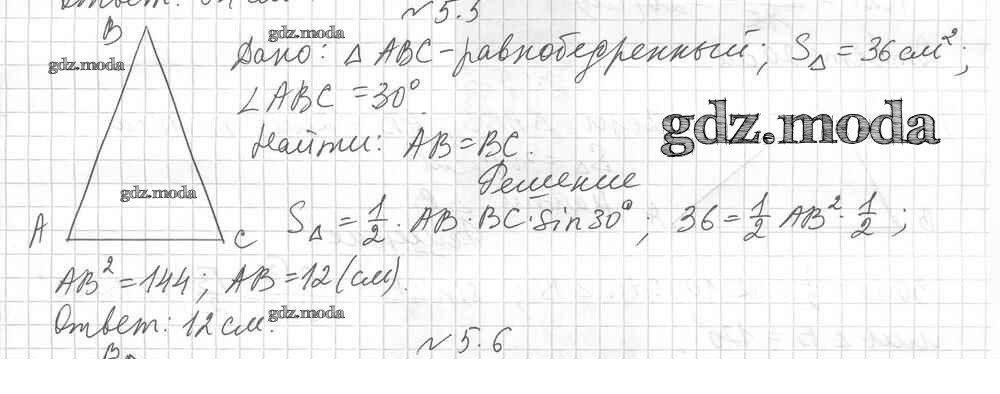 №5.5
B
gdz.moda
gdz.moda
Дано: △ABC-равнобедренный; S△ = 36 см²;
∠ABC = 30°.
gdz.moda
Найти: AB = BC.
Решение
gdz.moda
A
C
S△ = 1/2 · AB · BC · sin30°; 36 = 1/2 AB² · 1/2;
AB² = 144; AB = 12 (см).
Ответ: 12 см.
gdz.moda
№5.6